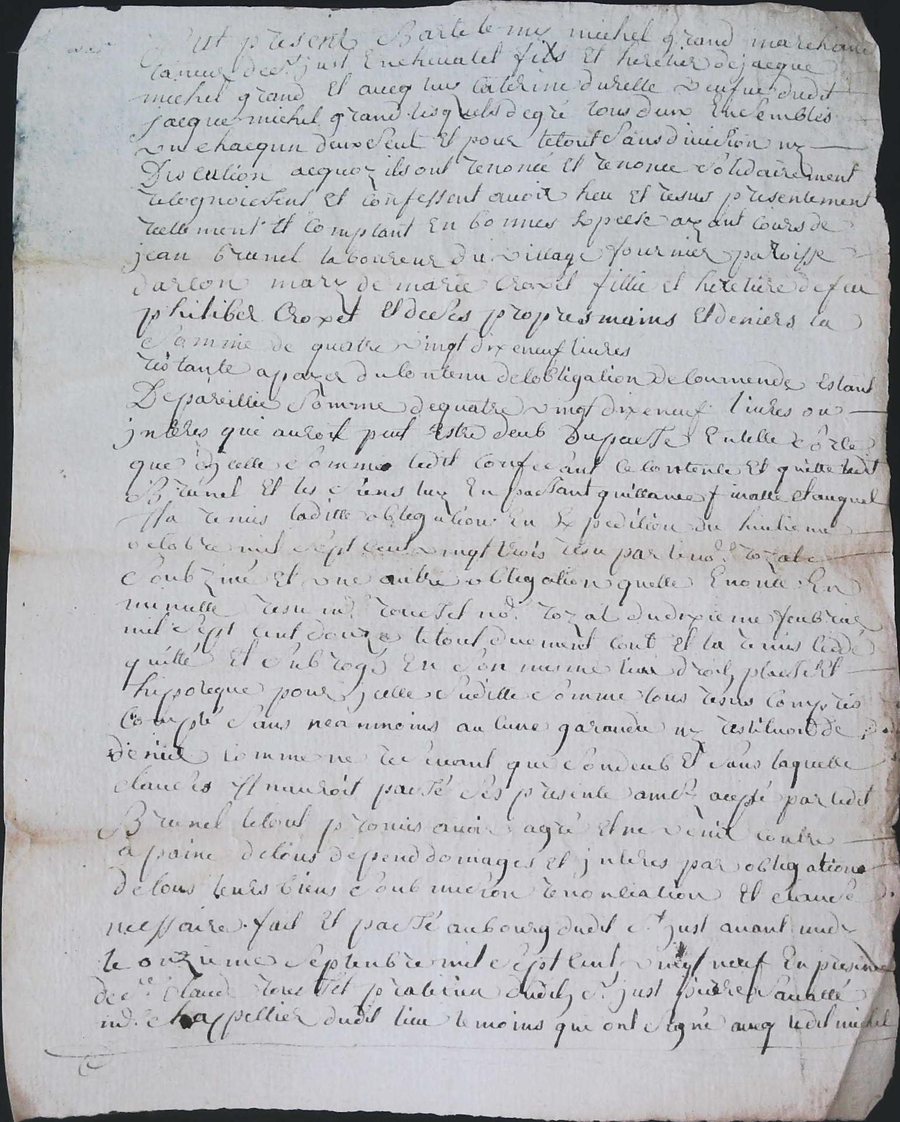 fut present Bartelemy michel grand marchand
taneur de st just Enchevalet fils Et heretier de jacque
michel grand Et avecq luy Caterine durelle veufue dudit
jacque michel grand lesquels de gré tous deux Ensembles
un chacqun deux seul Et pour le tout sans division ny
Discution acquoy ils ont renoncé Et renonce solidairement
recognoissent et confessent avoir heu Et resus presentement
reellement Et Comptant En bonnes Espesse ayant cours de
jean brunel laboureur du village fournier paroisse
darcon mary de marie Croxet fillie et heretiere de feu
philiber Croxet Et de ses propres mains Et deniers la
somme de quatre vingt dix eneuf livres
restante a payer du contenu de lobligation de Estant
De pareillie somme de quatre vingt dix eneuf livres ou
jnteres que auroit put Estre deub Du passé En telle sorte
que dycelle somme ledit confessant se contente Et quitte ledit
Brunel Et les siens luy En passant quittance finalle Et auquel
Jl a remis laditte obligation En Expedition du huitieme
octobre mil sept cent vingt trois resu par le nore royal
soubzine Et une autre obligation quelle Enonce En
minutte resu me nore royal du dixieme feubrier
mil sept cent douze le tout duement cont. Et la remis cedé
quitté Et subrogé En son mesme lieu droit place Et
hipoteque pour jcelle suditte somme tous resus compris
Compté sans neanmoins aucune garantie ny restitution de
denier comme ne recevant que son deub Et sans laquelle
clauses Jl nauroit passé ses presente ainsy acepté par ledit
Brunel le tout promis avoir agré Et ne venir contre
a paine de tous depend domages Et jnteres par obligations
de tous leurs biens soubmission renonciation Et clause
necessaire fait Et passé au bourg dudit st just avant midy
le onzieme septenbre mil sept cent vingt neuf En presence
de sre claude praticien dudit st just pierre
md chappellier dudit lieu temoins que ont signé avecq ledit michel